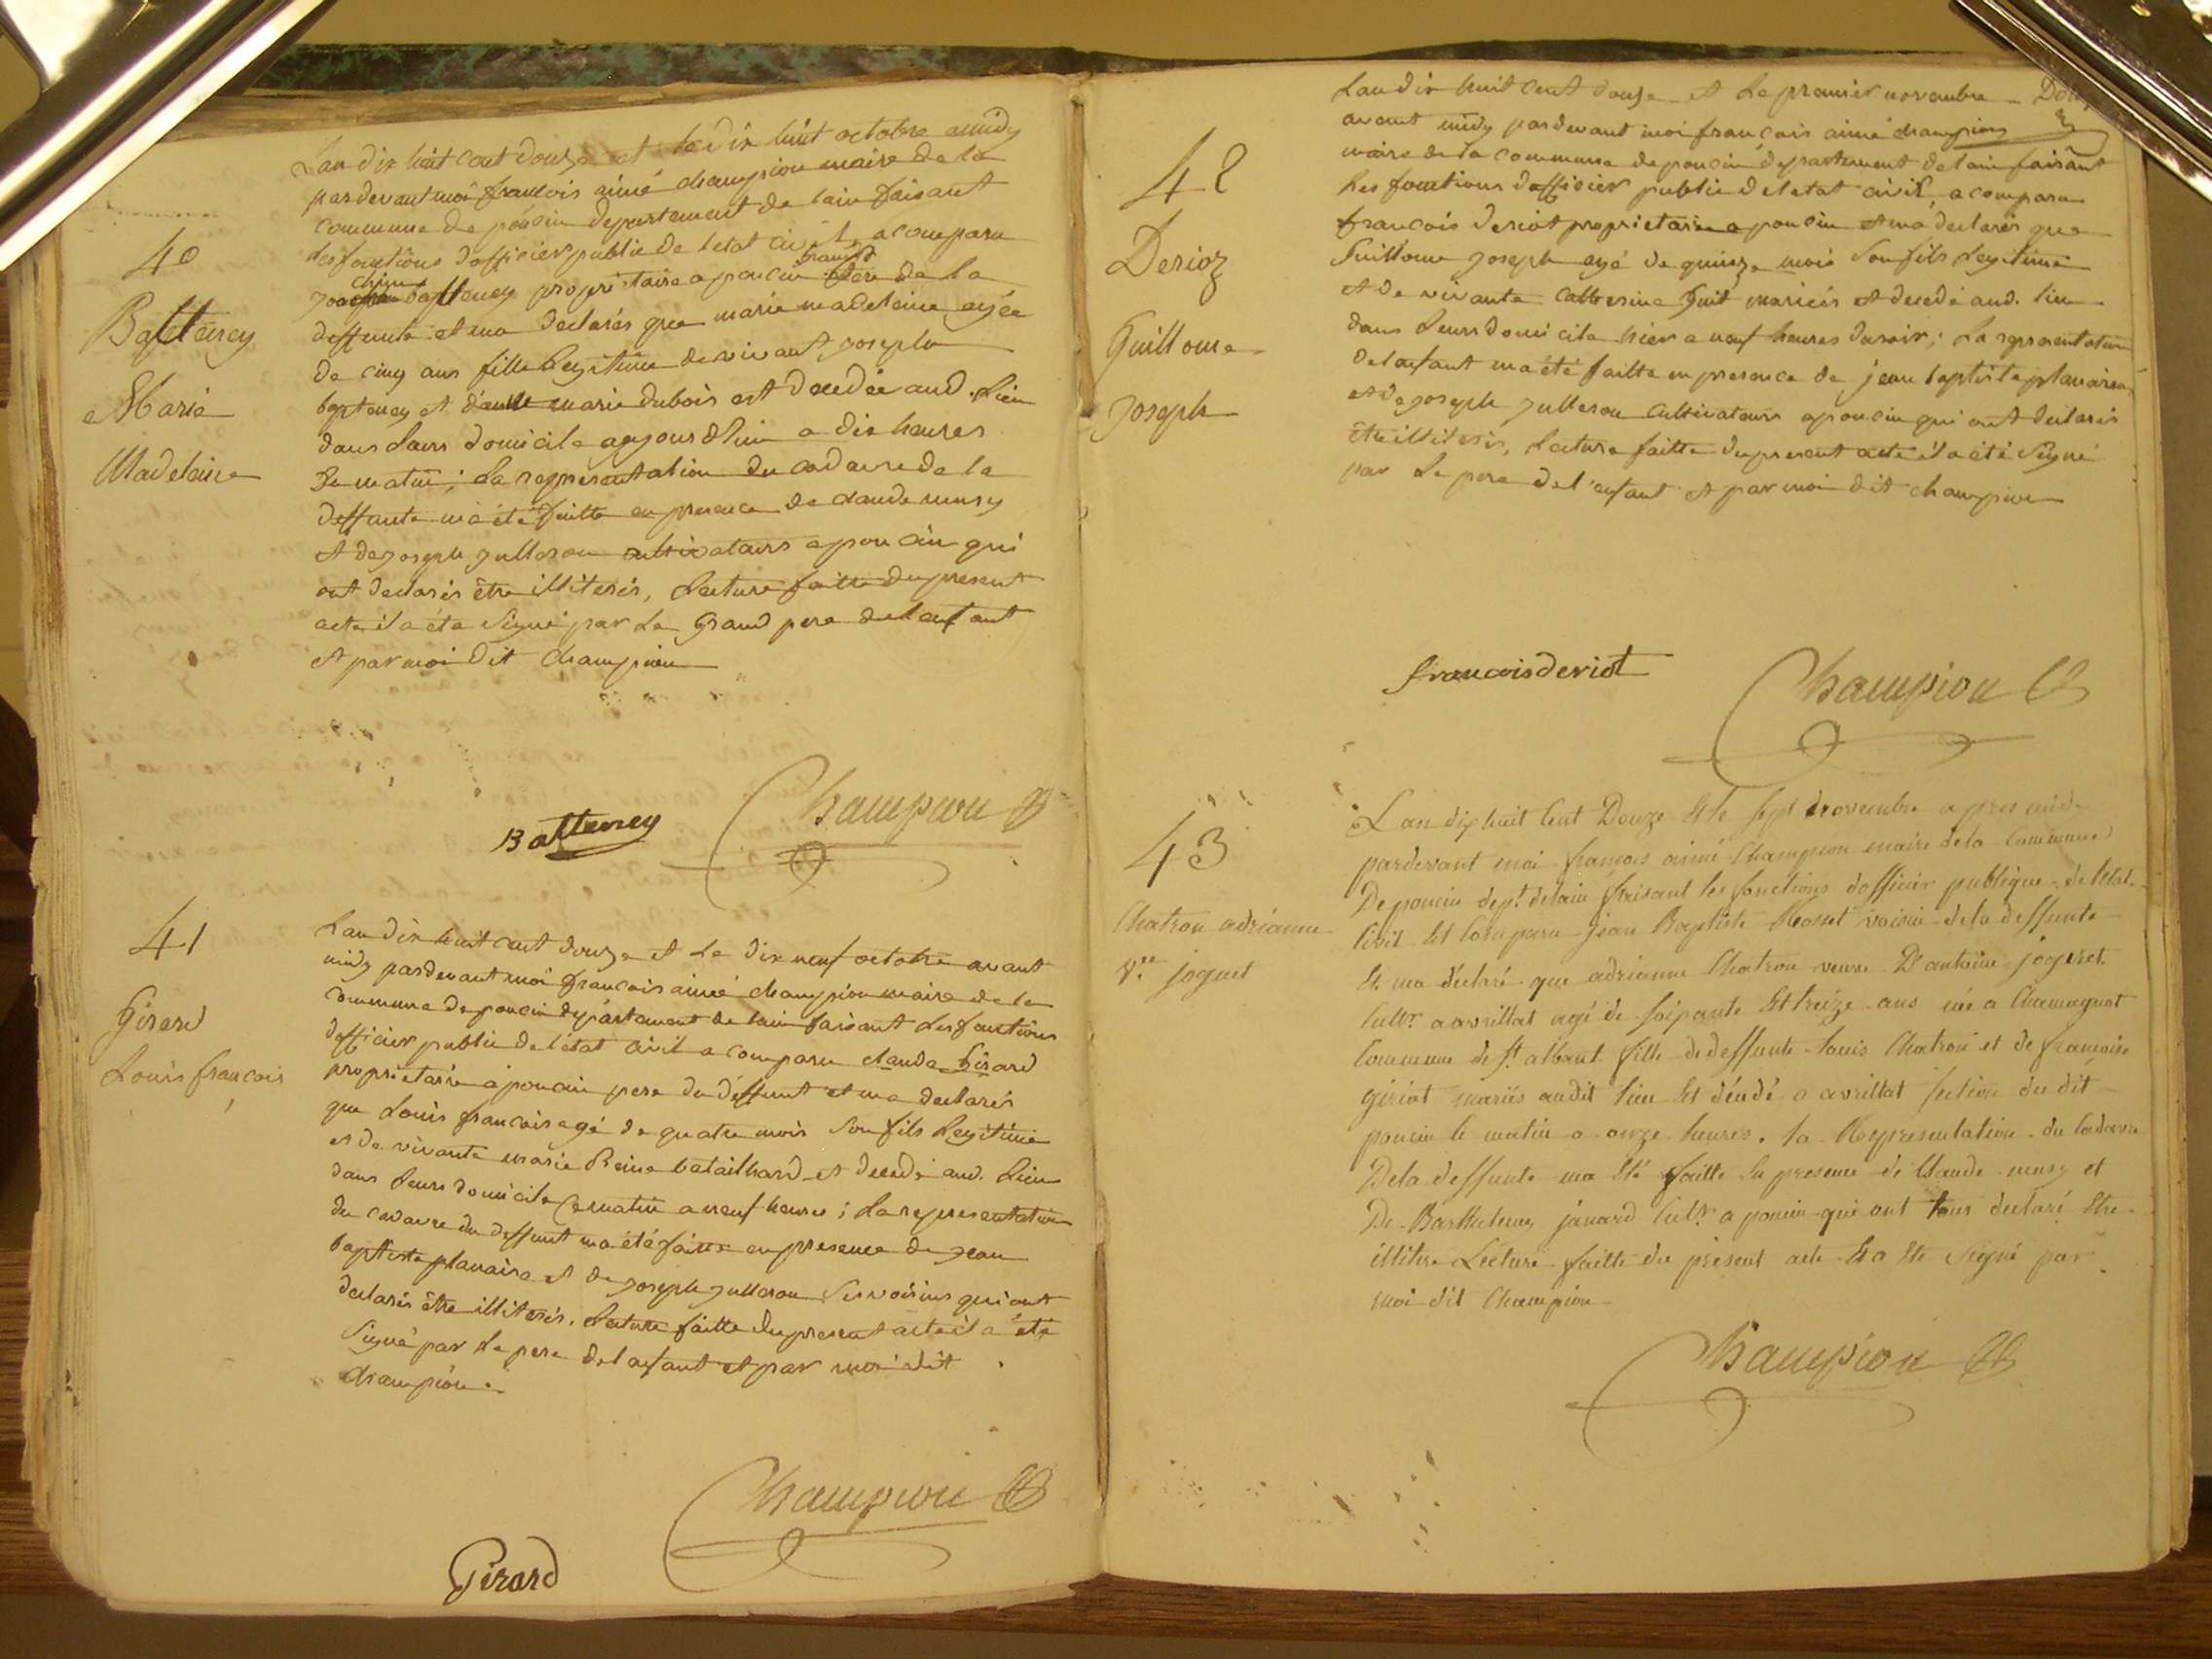 40
Batteney
Marie
Madelaine
L'an dix huit cent douze et le dix huit octobre amidy
pardevant moi francois aimé champion maire de la
commune de poncin departement de lain faisant
les fonctions d'officier public de letat civil, a comparu
chim grand
joa batteney propriétaire a poncin pere de la
deffunte et ma declarés que marie madelaine agée
de cinq ans fille legitime de vivant joseph
batteney et d'anne marie dubois est decedée aud. lieu
dans leurs domicile aujourdhui a dix heures
du matin; la representation du cadavre de la
deffunte ma été faitte en presence de claude musy
et de joseph julleron cultivateurs a poncin qui
ont declarés être illiterés, lecture faitte du present
acte il a été signé par le grand pere de lenfant
et par moi dit champion
Batteney
Champion
41
Girard
Louis françois
L'an dix huit cent douze et le dix neuf octobre avant
midy pardevant moi françois aimé champion maire de la
commune de poncin departement de lain faisant les fonctions
dofficier public de l'état civil a comparu claude Girard
proprietaire a poncin pere du deffunt et ma declarés
que Louis francois agé de quatre mois son fils legitime
et de vivante marie Reine batailhard est decedé aud. lieu
dans leurs domicile ce matin a neuf heures; la representation
du cadavre du deffunt ma été faitte en presence de jean
baptiste planaise et de joseph julleron ses voisins qui ont
declarés être illiterés. lecture faitte du present acte il a été
signé par le pere de lenfant et par moi dit
champion.
Girard
Champion
42
Derioz
Guillome
joseph
L'an dix huit cent douze et le premier novembre
avant midy pardevant moi françois aimé champion
maire de la commune de poncin departement de lain faisant
les fonctions dofficier public de letat civil, a comparu
francois deriot proprietaire a poncin et ma declarés que
Guillome joseph agé de quinze mois son fils legitime
et de vivante catherine Guit mariés est decedé aud. lieu
dans leurs domicile hier a neuf heures du soir; la representation
de lenfant ma été faitte en presence de jean baptiste planaise
et de joseph julleron cultivateurs a poncin qui ont declarés
être illiterés, lecture faitte du present acte il a été signé
par le pere de l'enfant et par moi dit champion
francois deriot
Champion
43
Chatron adrianne
v.ve joguet
L'an dix huit cent Douze et le sept novembre apres midi
pardevant moi françois aimé Champion maire de la commune
De poncin dep.t de lain faisant les fonctions d'officier publique de letat
Civil est comparu jean Baptiste Mosset voisin de la deffunte
et ma déclaré que adrianne Chatron veuve D'antoine joguet
cult.r a avrillat agé de soixante et treize ans née a Chamagnat
Commune de s.t albant fille de deffunts louis Chatron et de francoise
giriot mariés audit lieu est décédé a avrillat section du dit
poncin le matin a onze heures. la Représentation du Cadavre
De la deffunte ma été faitte en presence de Claude musy et
De Barthelemy janard cult.r a poncin qui ont tous declaré être
illitéré Lecture faitte du présent acte il a été signé par
moi dit Champion
Champion